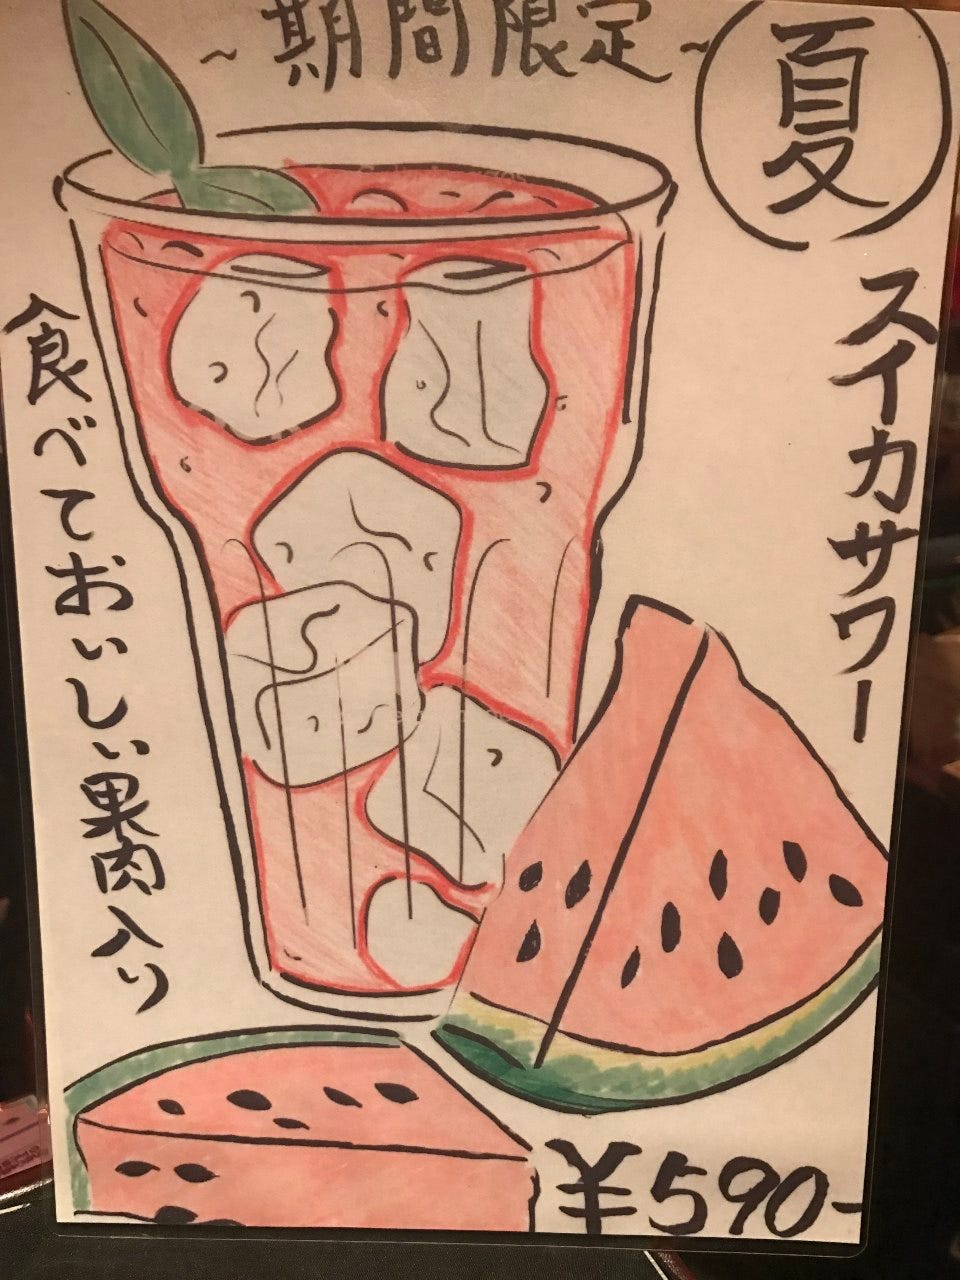 ~期間限定~
夏
スイカサワー
食べておいしい果肉入り
¥590-